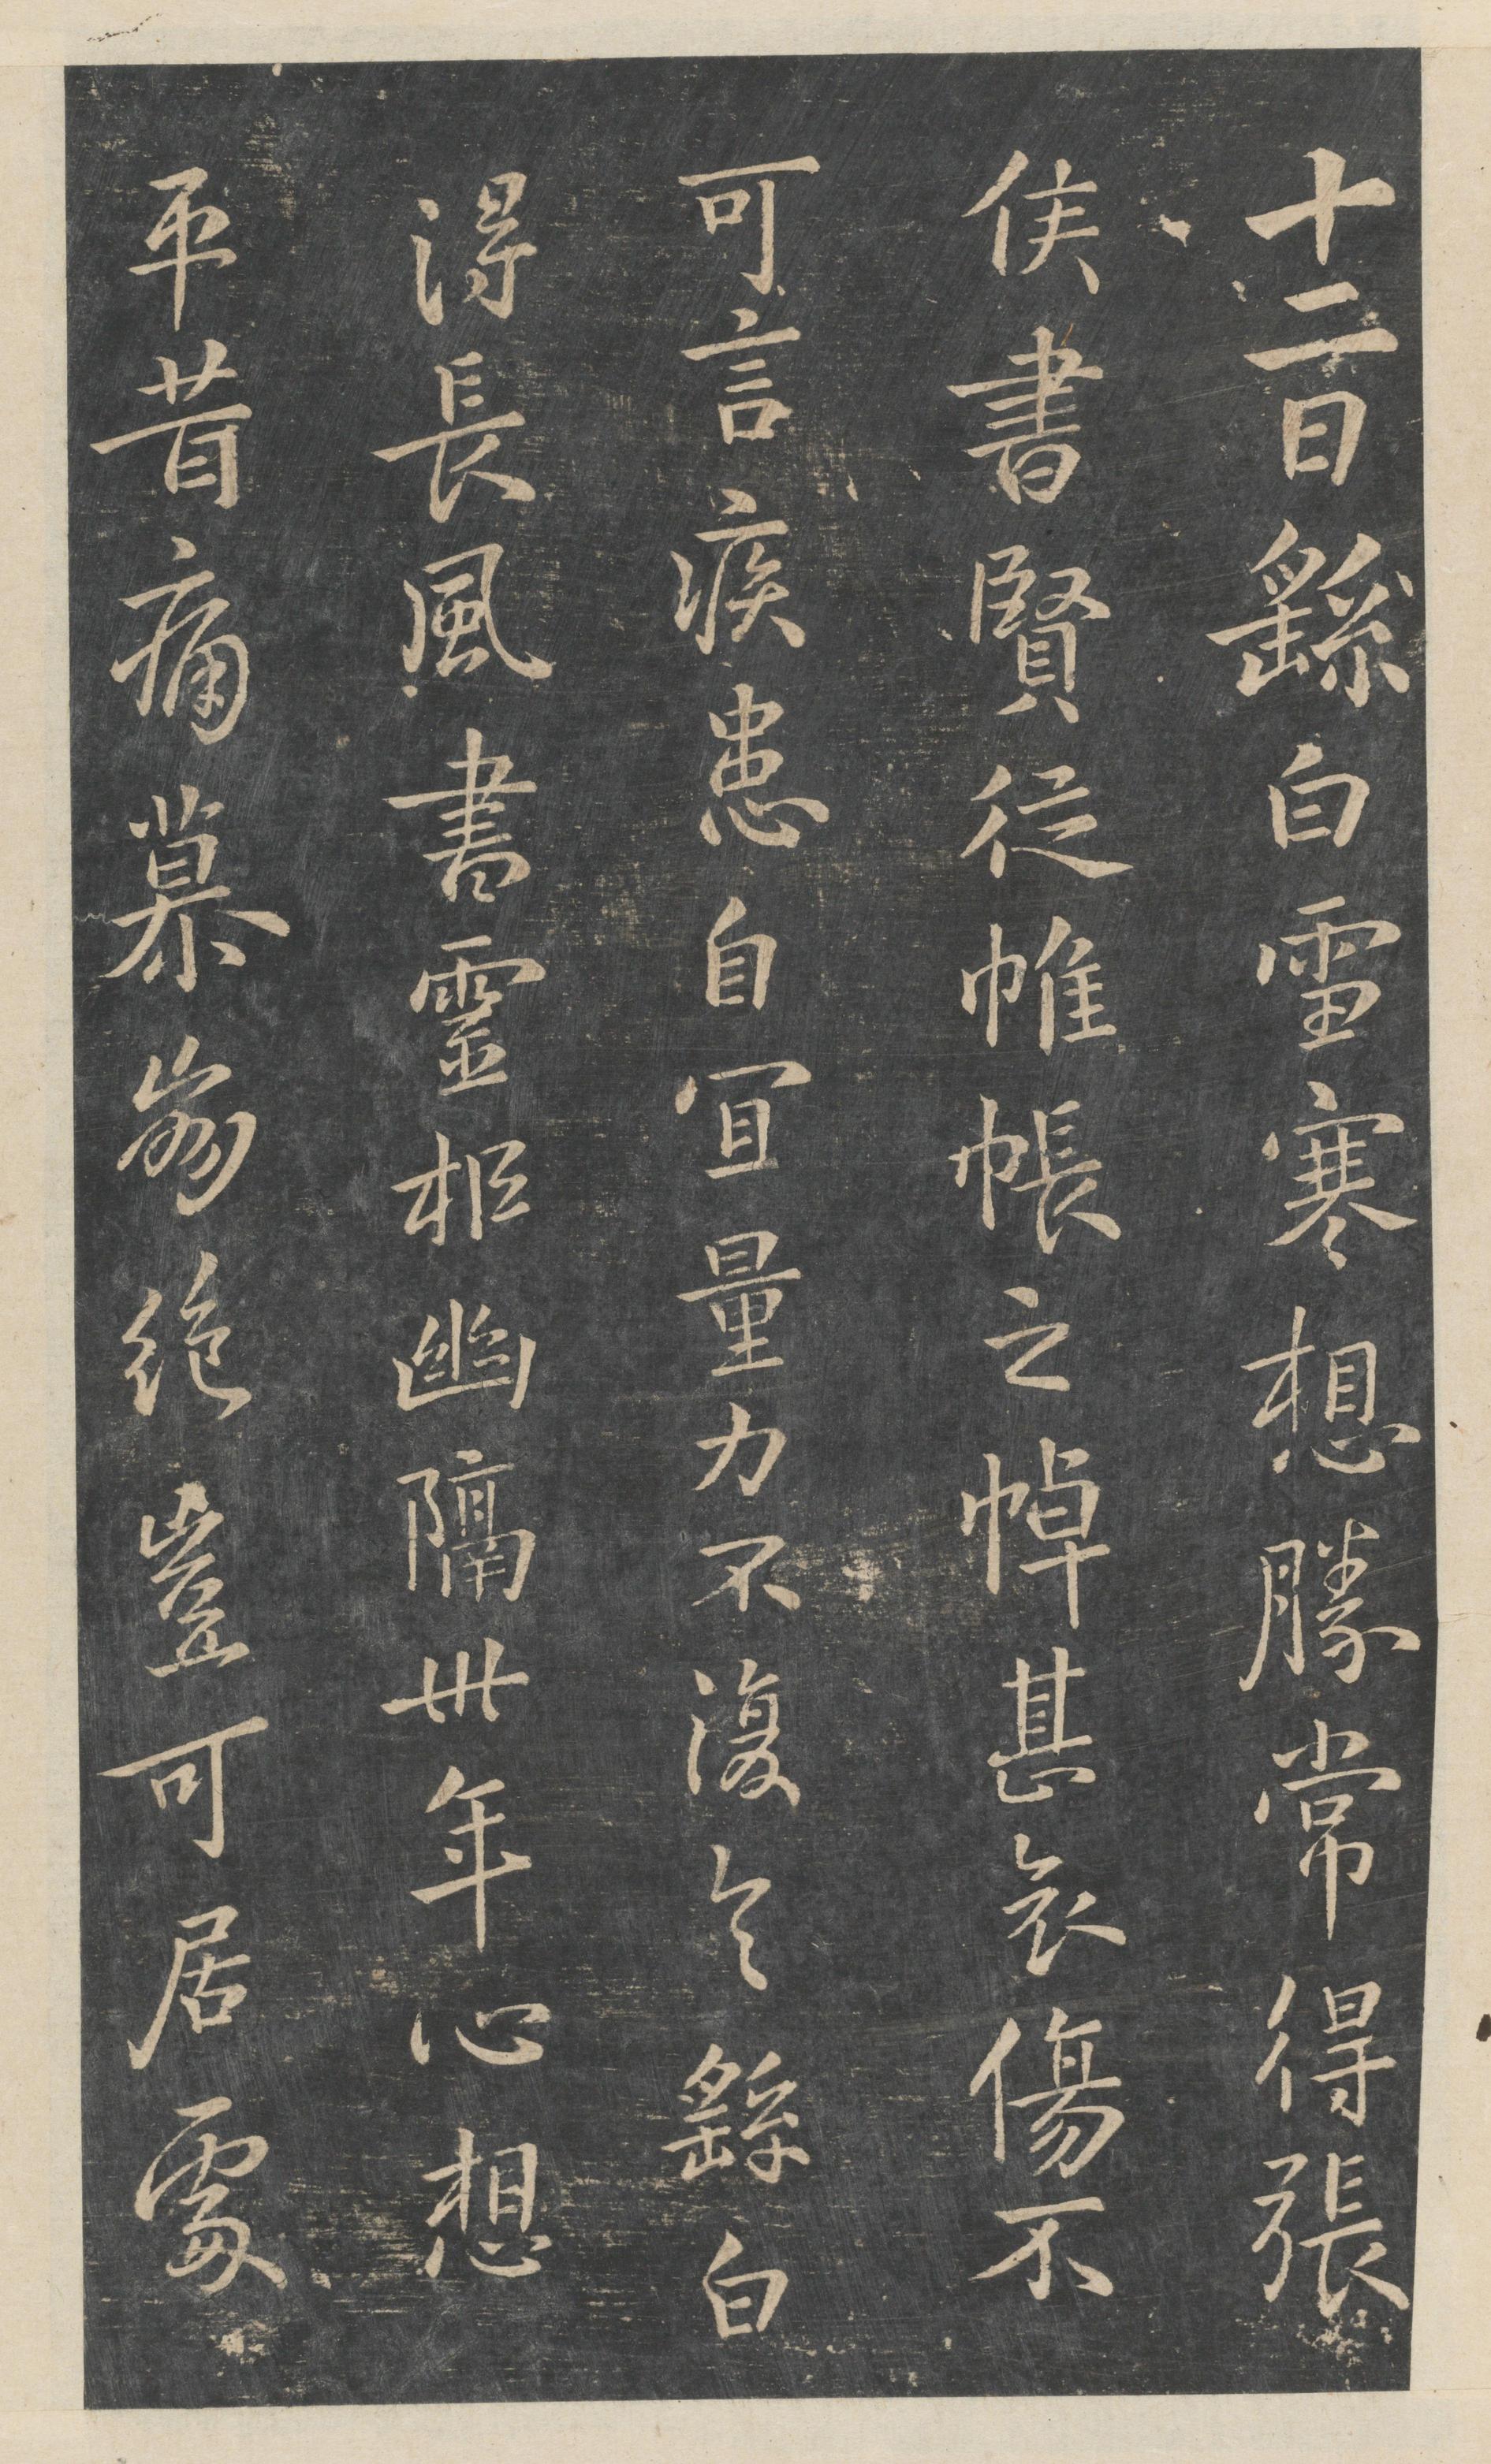 十二日繇白雪寒想勝常得張
侯書賢從帷帳之悼甚哀傷不
可言疾患自宜量力不復具繇白
得長風書靈柩幽隔卅年心想
平昔痛慕崩絕豈可居處